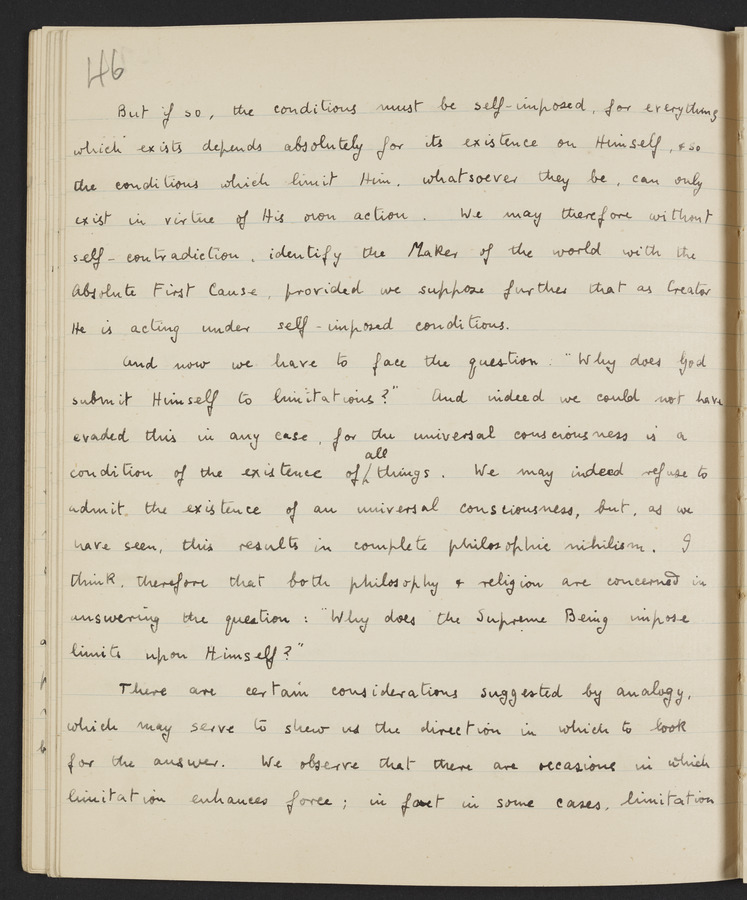 46
But if so, the conditions must be self-imposed, for everything
which exists depends absolutely for its existence on Himself, & so
the conditions which limit Him, whatsoever they be, can only
exist in virtue of His own action. We may therefore without
self-contradiction, identify the Maker of the world with the
Absolute First Cause, provided we suppose further that as Creator
He is acting under self-imposed conditions.
And now we have to face the question: "Why does God
submit Himself to limitations?" And indeed we could not have
evaded this in any case, for the universal consciousness is a
condition of the existence of all things. We may indeed refuse to
admit the existence of an universal consciousness, but, as we
have seen, this results in complete philosophic nihilism. I
think, therefore that both philosophy & religion are concerned in
answering the question: "Why does the Supreme Being impose
limits upon Himself?"
There are certain considerations suggested by analogy,
which may serve to shew us the direction in which to look
for the answer. We observe that there are occasions in which
limitation enhances force; in fact in some cases, limitation